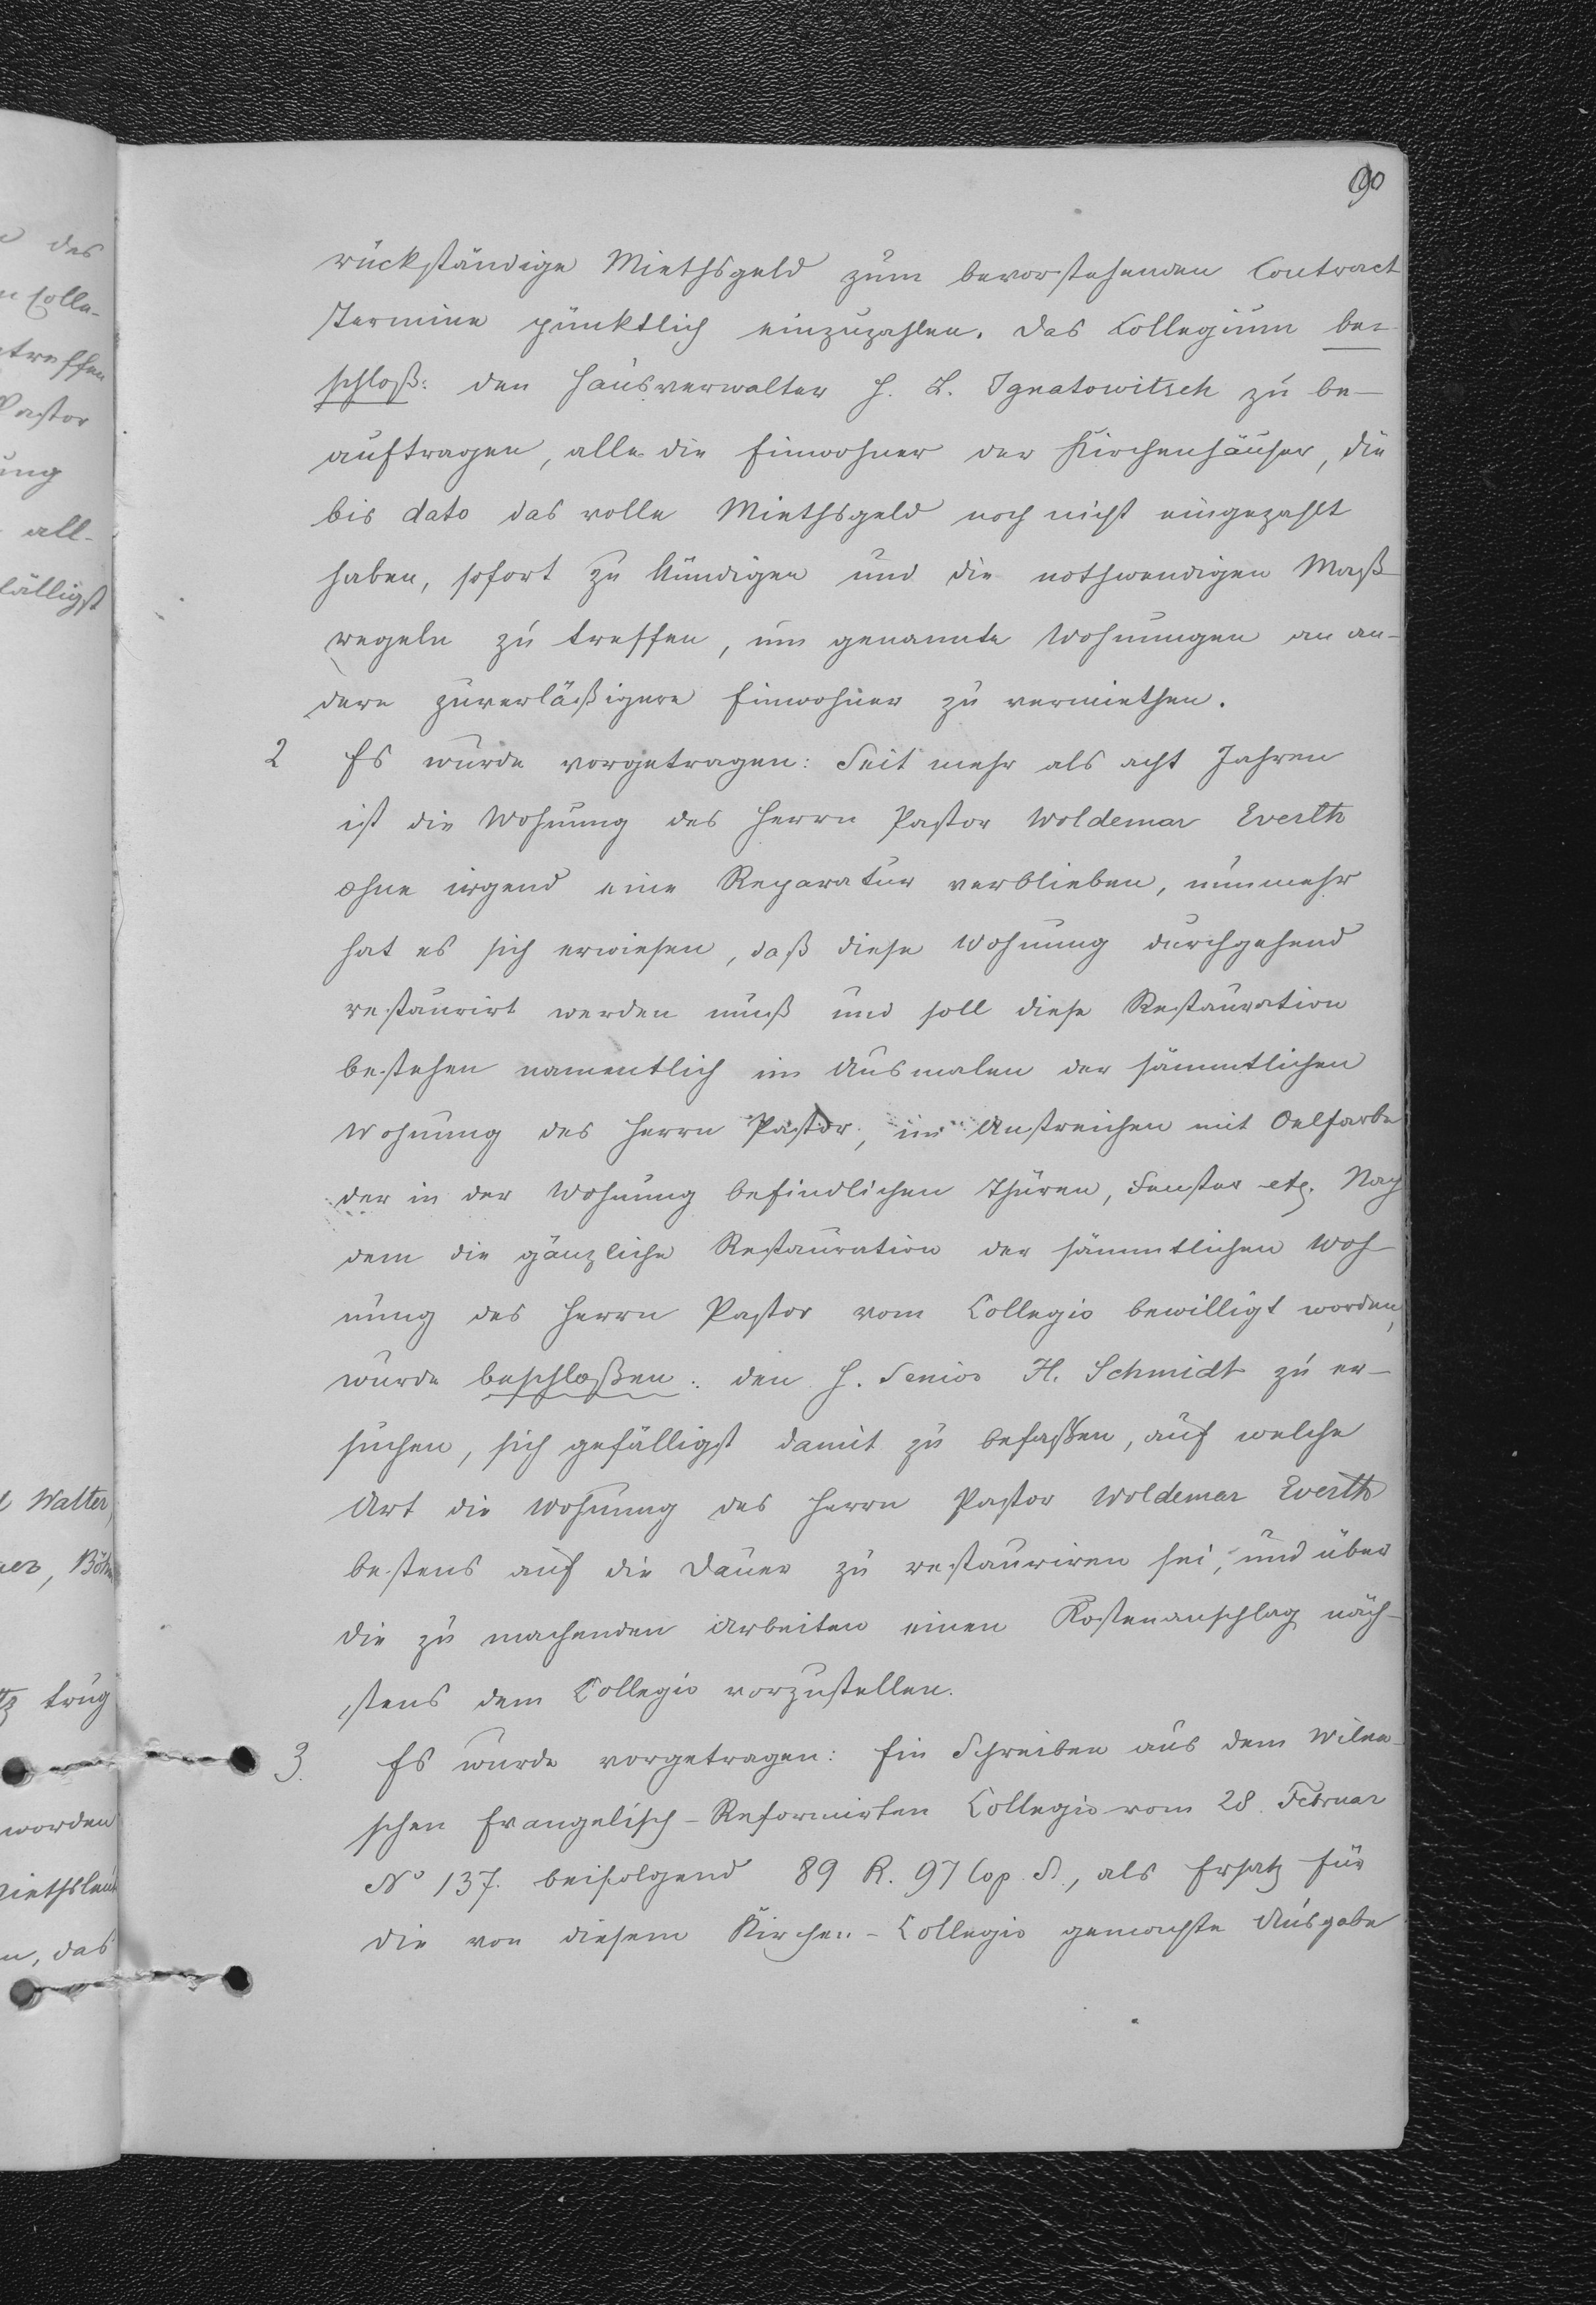 90
rückständige Miethsgeld zum bevorstehenden Contract
Termine pünktlich einzuzahlen. Das Collegium be-
schloß: den Hausverwalter H. L. Ignatowitsch zu be-
auftragen, alle die Einwohner der Kirchenhäuser, die
bis dato das volle Miethsgeld noch nicht eingezahlt
haben, sofort zu kündigen und die nothwendigen Maß-
regeln zu treffen, um genannte Wohnungen an an-
dere zuverläßigere Einwohner zu vermiethen.
2 Es wurde vorgetragen: Seit mehr als acht Jahren
ist die Wohnung des Herrn Pastor Woldemar Everth
ohne irgend eine Reparatur verblieben, nunmehr
hat es sich erwiesen, daß diese Wohnung durchgehend
restaurirt werden muß und soll diese Restauration
bestehen namentlich im Ausmalen der sämmtlichen
Wohnung des Herrn Pastor, im Anstreichen mit Oelfarbe
der in der Wohnung befindlichen Thüren, Fenster etc. Nach
dem die gänzliche Restauration der sämmtlichen Woh-
nung des Herrn Pastor vom Collegio bewilligt worden,
wurde beschloßen: den H. Senior H. Schmidt zu er-
suchen, sich gefälligst damit zu befaßen, auf welche
Art die Wohnung des Herrn Pastor Woldemar Everth
bestens auf die Dauer zu restauriren sei, und über
die zu machenden Arbeiten einen Kostenanschlag näch-
stens dem Collegio vorzustellen.
3. Es wurde vorgetragen: Ein Schreiben aus dem Wilna-
schen Evangelisch-Reformirten Collegio vom 28. Februar
No 137. beifolgend 89 R. 97 Cop. S., als Ersatz für
die von diesem Kirchen-Collegio gemachte Ausgabe